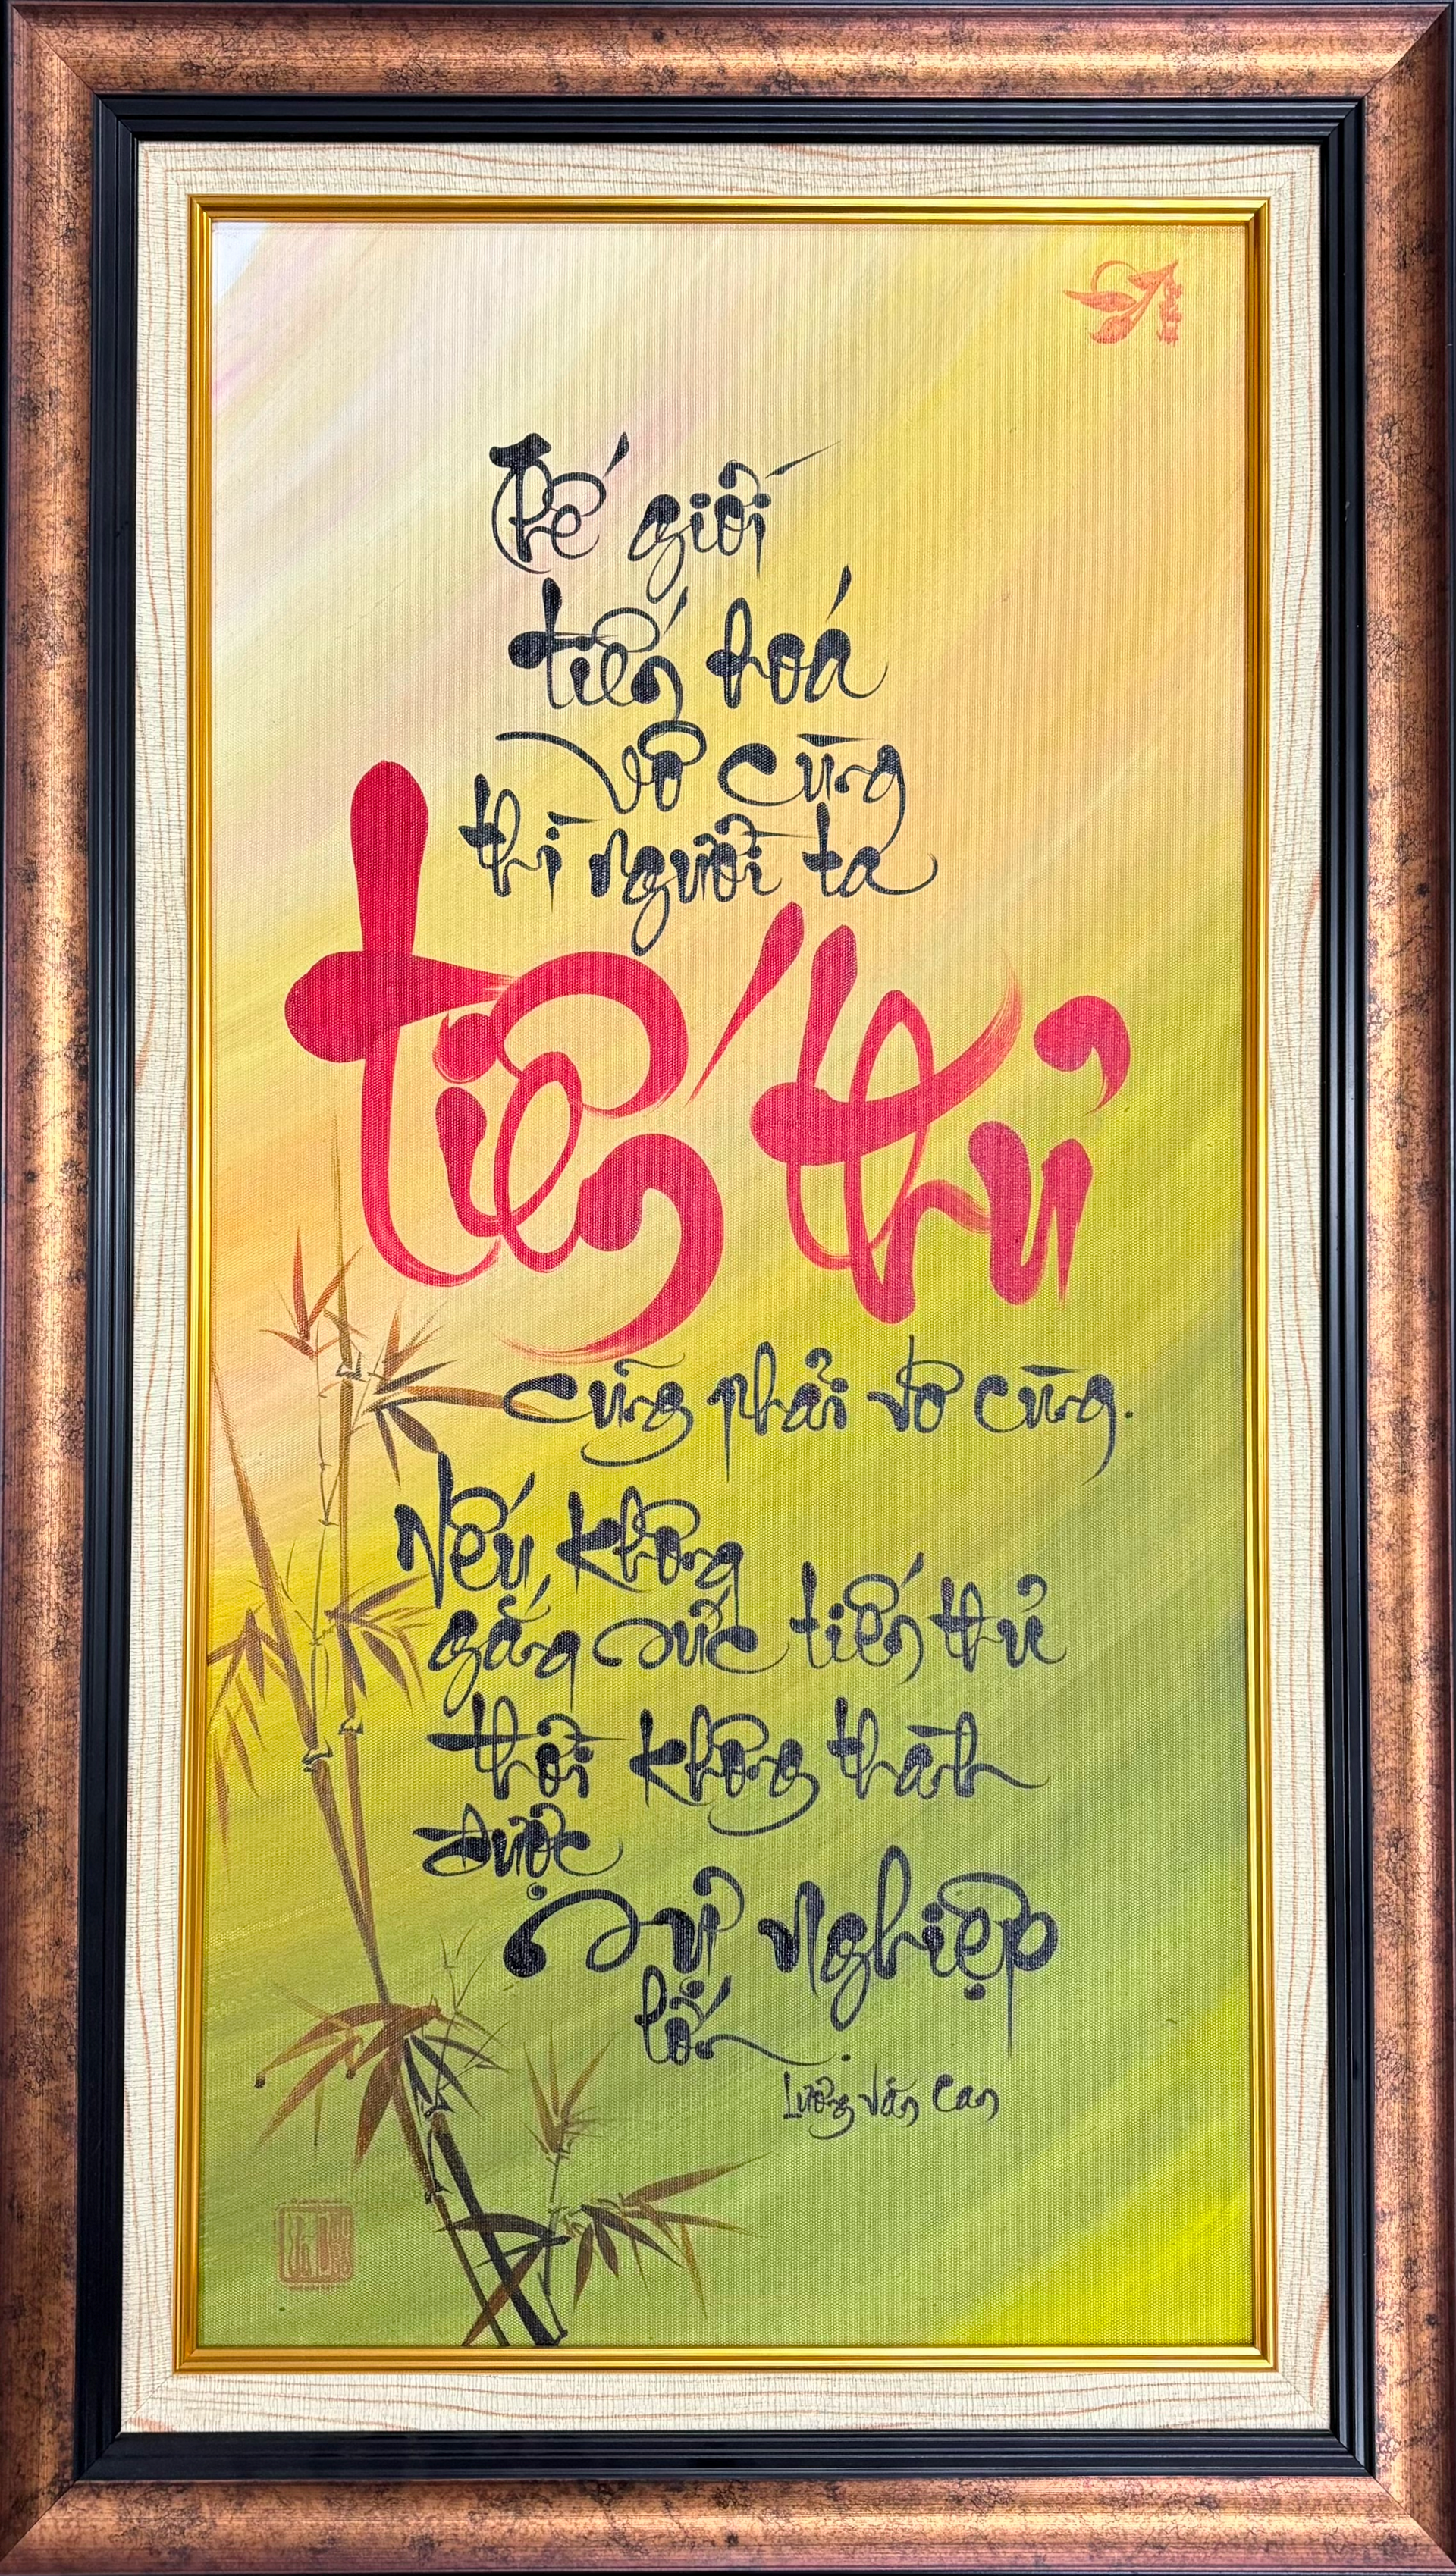 Thế giới
tiến hoá
vô cùng
thì người ta
tiến thủ
cũng phải vô cùng.
Nếu không
gắng sức tiến thủ
thời không thành
được
sự nghiệp
lớn.
Lương Văn Can